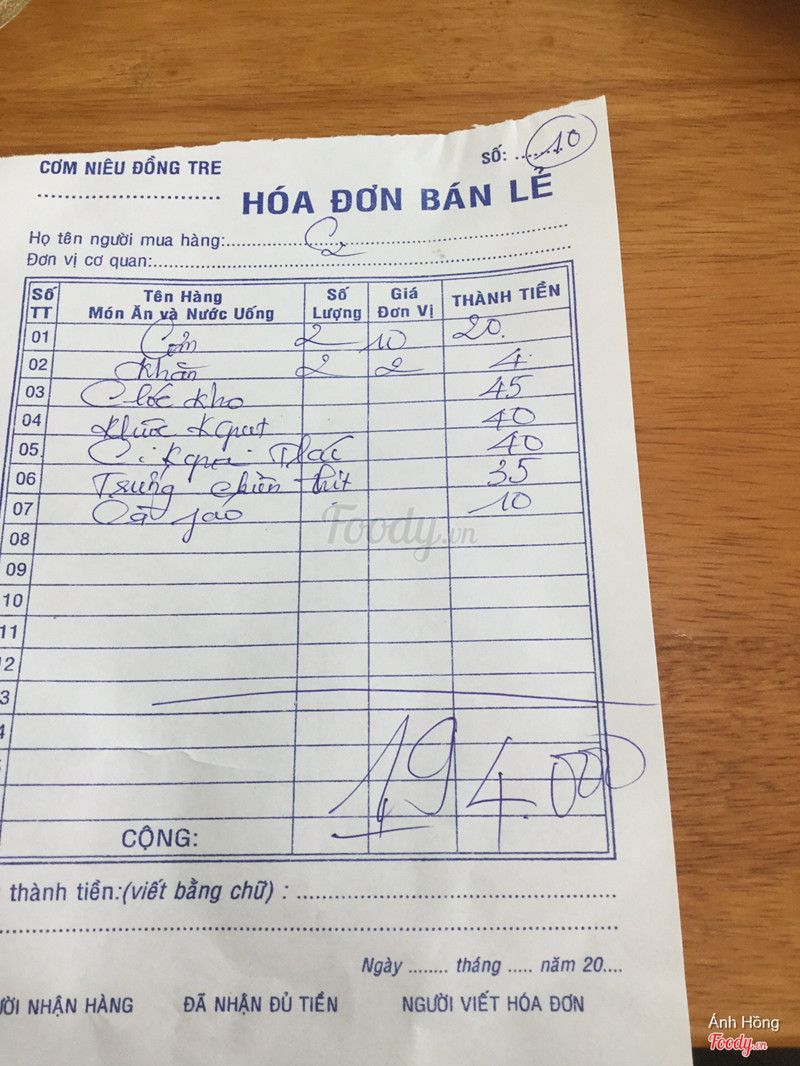 CƠM NIÊU ĐỒNG TRE
SỐ: ......10
HÓA ĐƠN BÁN LẺ
Họ tên người mua hàng: C2
Đơn vị cơ quan:
Số TT Tên Hàng Món Ăn và Nước Uống Số Lượng Giá Đơn Vị THÀNH TIỀN
01 Cơm 2 10 20.
02 Khăn 2 2 4
03 C lóc kho 45
04 40
05. 40
06 Trứng chiên thịt 35
07 Cà 10
08
09
10
11
12
3
4
194.000
CỘNG:
thành tiền:(viết bằng chữ) :
Ngày ........ tháng ..... năm 20....
ƯỜI NHẬN HÀNG ĐÃ NHẬN ĐỦ TIỀN NGƯỜI VIẾT HÓA ĐƠN
Foody.vn
Ánh Hồng
Foody.vn